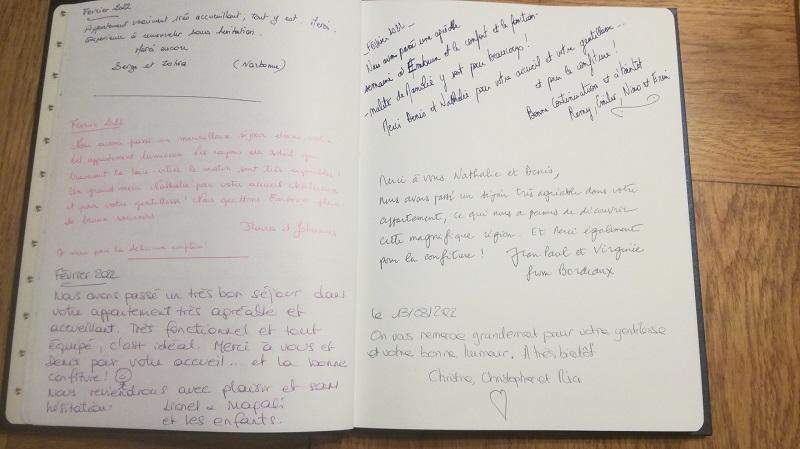 Février 2022
Appartement vraiment très accueillant, tout y est. Merci.
Expérience à renouveler sans hésitation.
Merci encore
Serge et Zohra (Narbonne)
Février 2022
Nous avons passé un merveilleux séjour dans votre
bel appartement lumineux. Les rayons du soleil qui
traversent la baie vitrée le matin sont très agréables !
Un grand merci Nathalie pour votre accueil chaleureux
et pour votre gentillesse ! Nous quittons Embrun plein
de beaux souvenirs
et Johannes
Et merci pour la délicieuse confiture !
Février 2022
Nous avons passé un très bon séjour dans
votre appartement très agréable et
accueillant. Très fonctionnel et tout
équipé, c'est idéal. Merci à vous et
Denis pour votre accueil ... et la bonne
confiture !
Nous reviendrons avec plaisir et sans
hésitation. Lionel & Magali
et les enfants.
Février 2022
Nous avons passé une agréable
semaine à Embrun et le confort et la fonction-
-nalité du meublé y sont pour beaucoup !
Merci Denis et Nathalie pour votre accueil et votre gentillesse ...
et pour la confiture !
Bonne Continuation et à bientôt
Remy, Emilie, Nino et
Merci à vous Nathalie et Denis,
nous avons passé un séjour très agréable dans votre
appartement, ce qui nous a permis de découvrir
cette magnifique région. Et merci également
pour la confiture ! Jean Paul et Virginie
from Bordeaux
Le 13/03/2022
On vous remercie grandement pour votre gentillesse
et votre bonne humeur. A très bientôt
Christine, Christopher et Ria